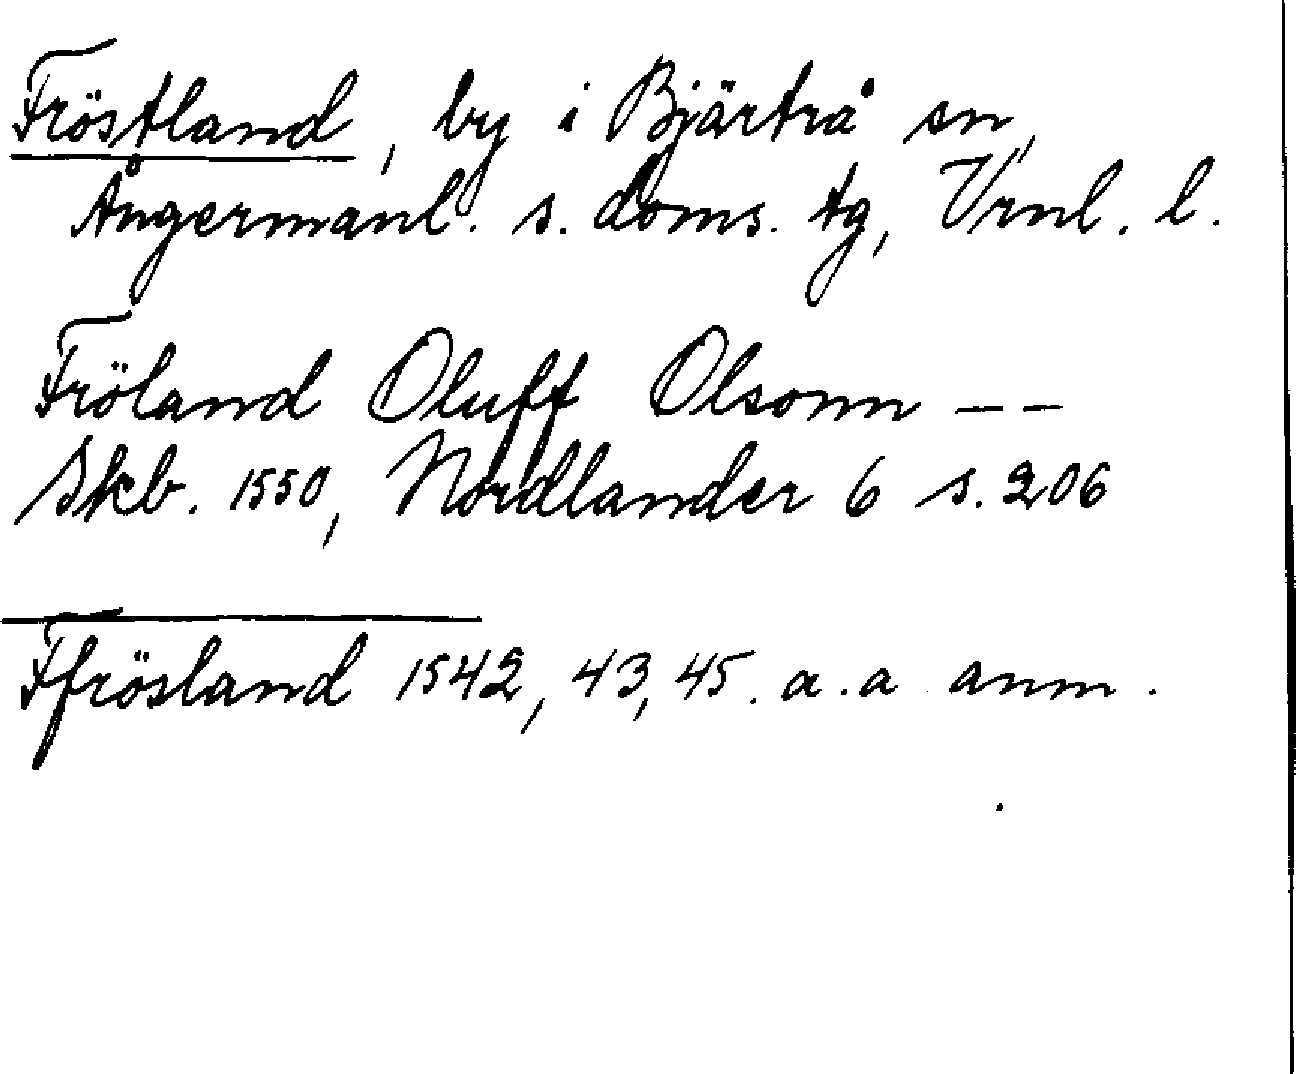 Fröstland, by i Bjärtrå sn,
Ångermanl. s. doms. tg, Vrnl. l.
Fröland Oluff Olsonn – –
Skb. 1550, Nordlander 6 s. 206
Ffrösland 1542, 43, 45. a.a anm.